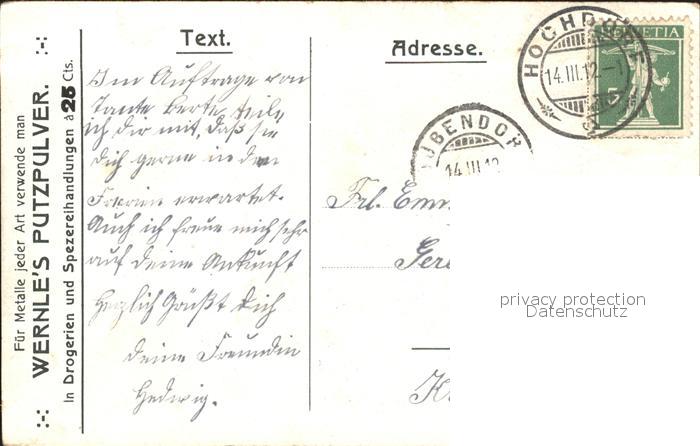 Für Metalle jeder Art verwende man
WERNLE'S PUTZPULVER.
In Drogerien und Spezereihandlungen à 25 Cts.
Text.
Im Auftrage von
Tante Berta teile
ich dir mit, daß sie
dich gerne in den
Ferien erwartet.
Auch ich freue mich sehr
auf deine Ankunft
Herzlich Grüßt dich
deine Freundin
Hedwig.
Adresse.
HOCHDORF
14.III.12.-1
HELVETIA
5
DÜBENDORF
14.III.12
Frl. Emm
Gere
K
privacy protection
Datenschutz